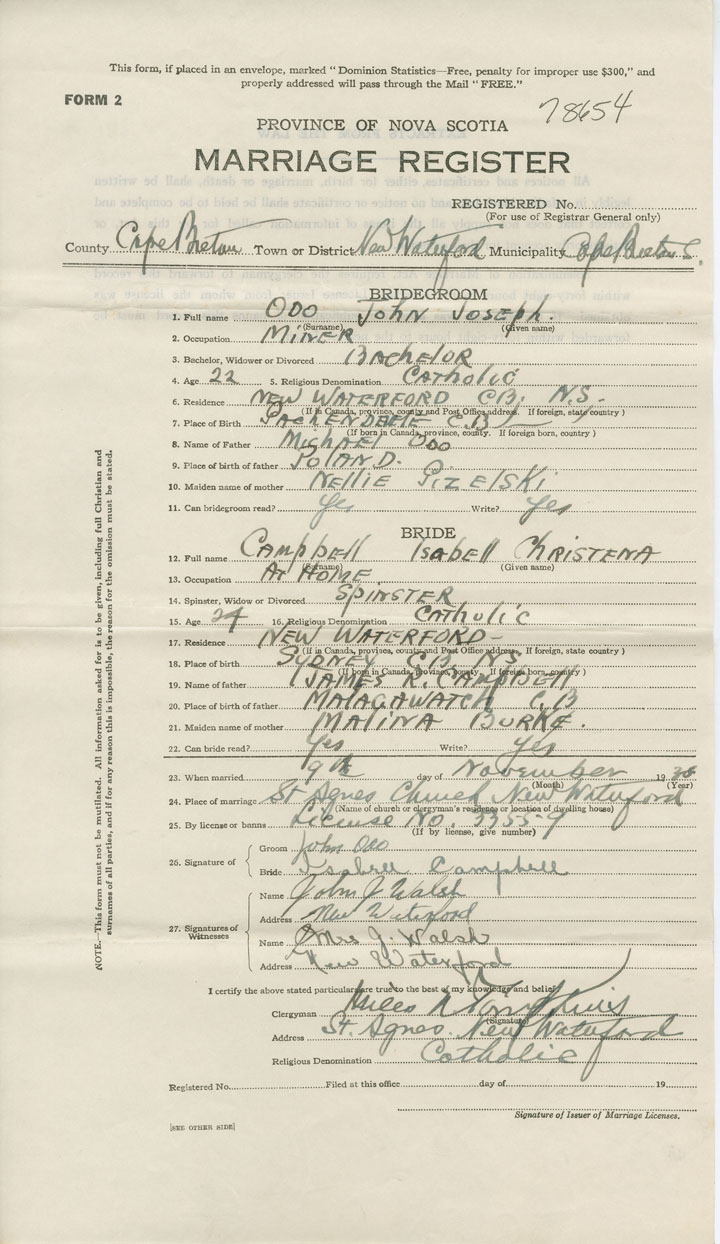 This form, if placed in an envelope, marked "Dominion Statistics—Free, penalty for improper use $300," and
properly addressed will pass through the Mail "FREE."
FORM 2
78654
PROVINCE OF NOVA SCOTIA
MARRIAGE REGISTER
REGISTERED No.
(For use of Registrar General only)
County Cape Breton Town or District New Waterford Municipality Cape Breton S.
BRIDEGROOM
1. Full name ODO John Joseph.
(Surname) (Given name)
2. Occupation MINER
3. Bachelor, Widower or Divorced BACHELOR
4. Age 22 5. Religious Denomination CATHOLIC
6. Residence NEW WATERFORD C.B. N.S.
(If in Canada, province, county and Post Office address. If foreign, state country)
7. Place of Birth C.B.
(If born in Canada, province, county. If foreign born, country)
8. Name of Father Michael ODO
9. Place of birth of father POLAND.
10. Maiden name of mother NELLIE
11. Can bridegroom read? Yes Write? Yes
BRIDE
12. Full name Campbell Isabell Christena
(Surname) (Given name)
13. Occupation At Home
14. Spinster, Widow or Divorced SPINSTER
15. Age 24 16. Religious Denomination Catholic
17. Residence NEW WATERFORD—
(If in Canada, province, county and Post Office address. If foreign, state country)
18. Place of birth SYDNEY C.B. N.S.
(If born in Canada, province, county. If foreign born, country)
19. Name of father JAMES R. CAMPBELL
20. Place of birth of father MALAGAWATCH C.B
21. Maiden name of mother MALINA BURKE.
22. Can bride read? Yes Write? Yes
23. When married 9th day of November 19
(Month) (Year)
24. Place of marriage St Agnes Church New Waterford
(Name of church or clergyman's residence or location of dwelling house)
25. By license or banns License No. 33559
(If by license, give number)
26. Signature of
Groom John Odo
Bride Isabell Campbell
27. Signatures of Witnesses
Name John J Walsh
Address New Waterford
Name Mrs J. Walsh
Address New Waterford
I certify the above stated particulars are true to the best of my knowledge and belief
Clergyman Miles N Tompkins
(Signature)
Address St. Agnes. New Waterford
Religious Denomination Catholic
Registered No. Filed at this office day of 19
Signature of Issuer of Marriage Licenses.
[SEE OTHER SIDE]
NOTE.—This form must not be mutilated. All information asked for is to be given, including full Christian and
surnames of all parties, and if for any reason this is impossible, the reason for the omission must be stated.